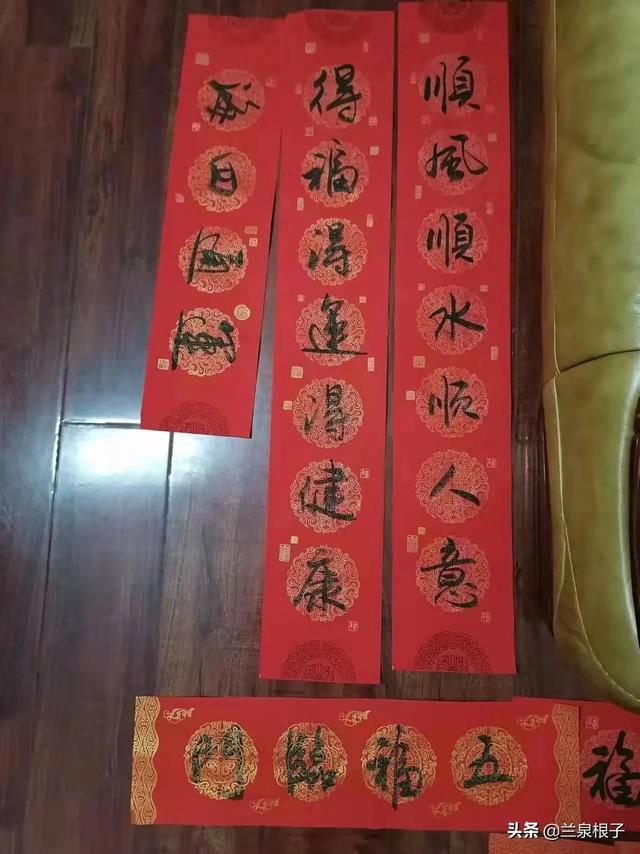 順風順水順人意
得福得運得健康
五福臨門
福
头条 @兰泉根子